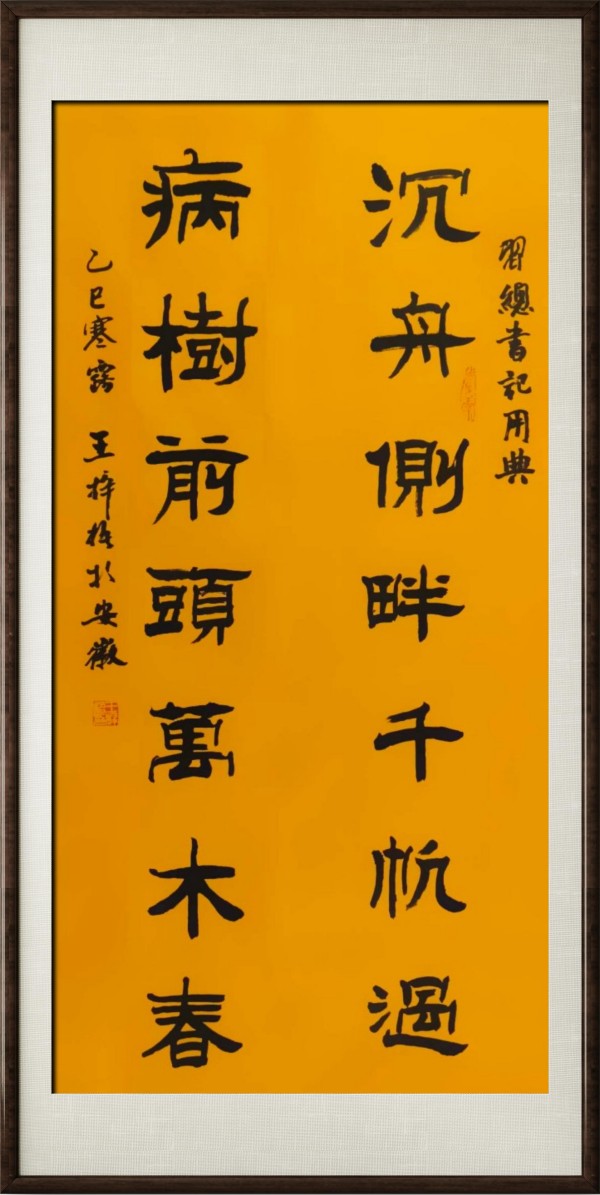 習總書記用典
沉舟側畔千帆過
病樹前頭萬木春
乙巳寒露 王梓 於安徽